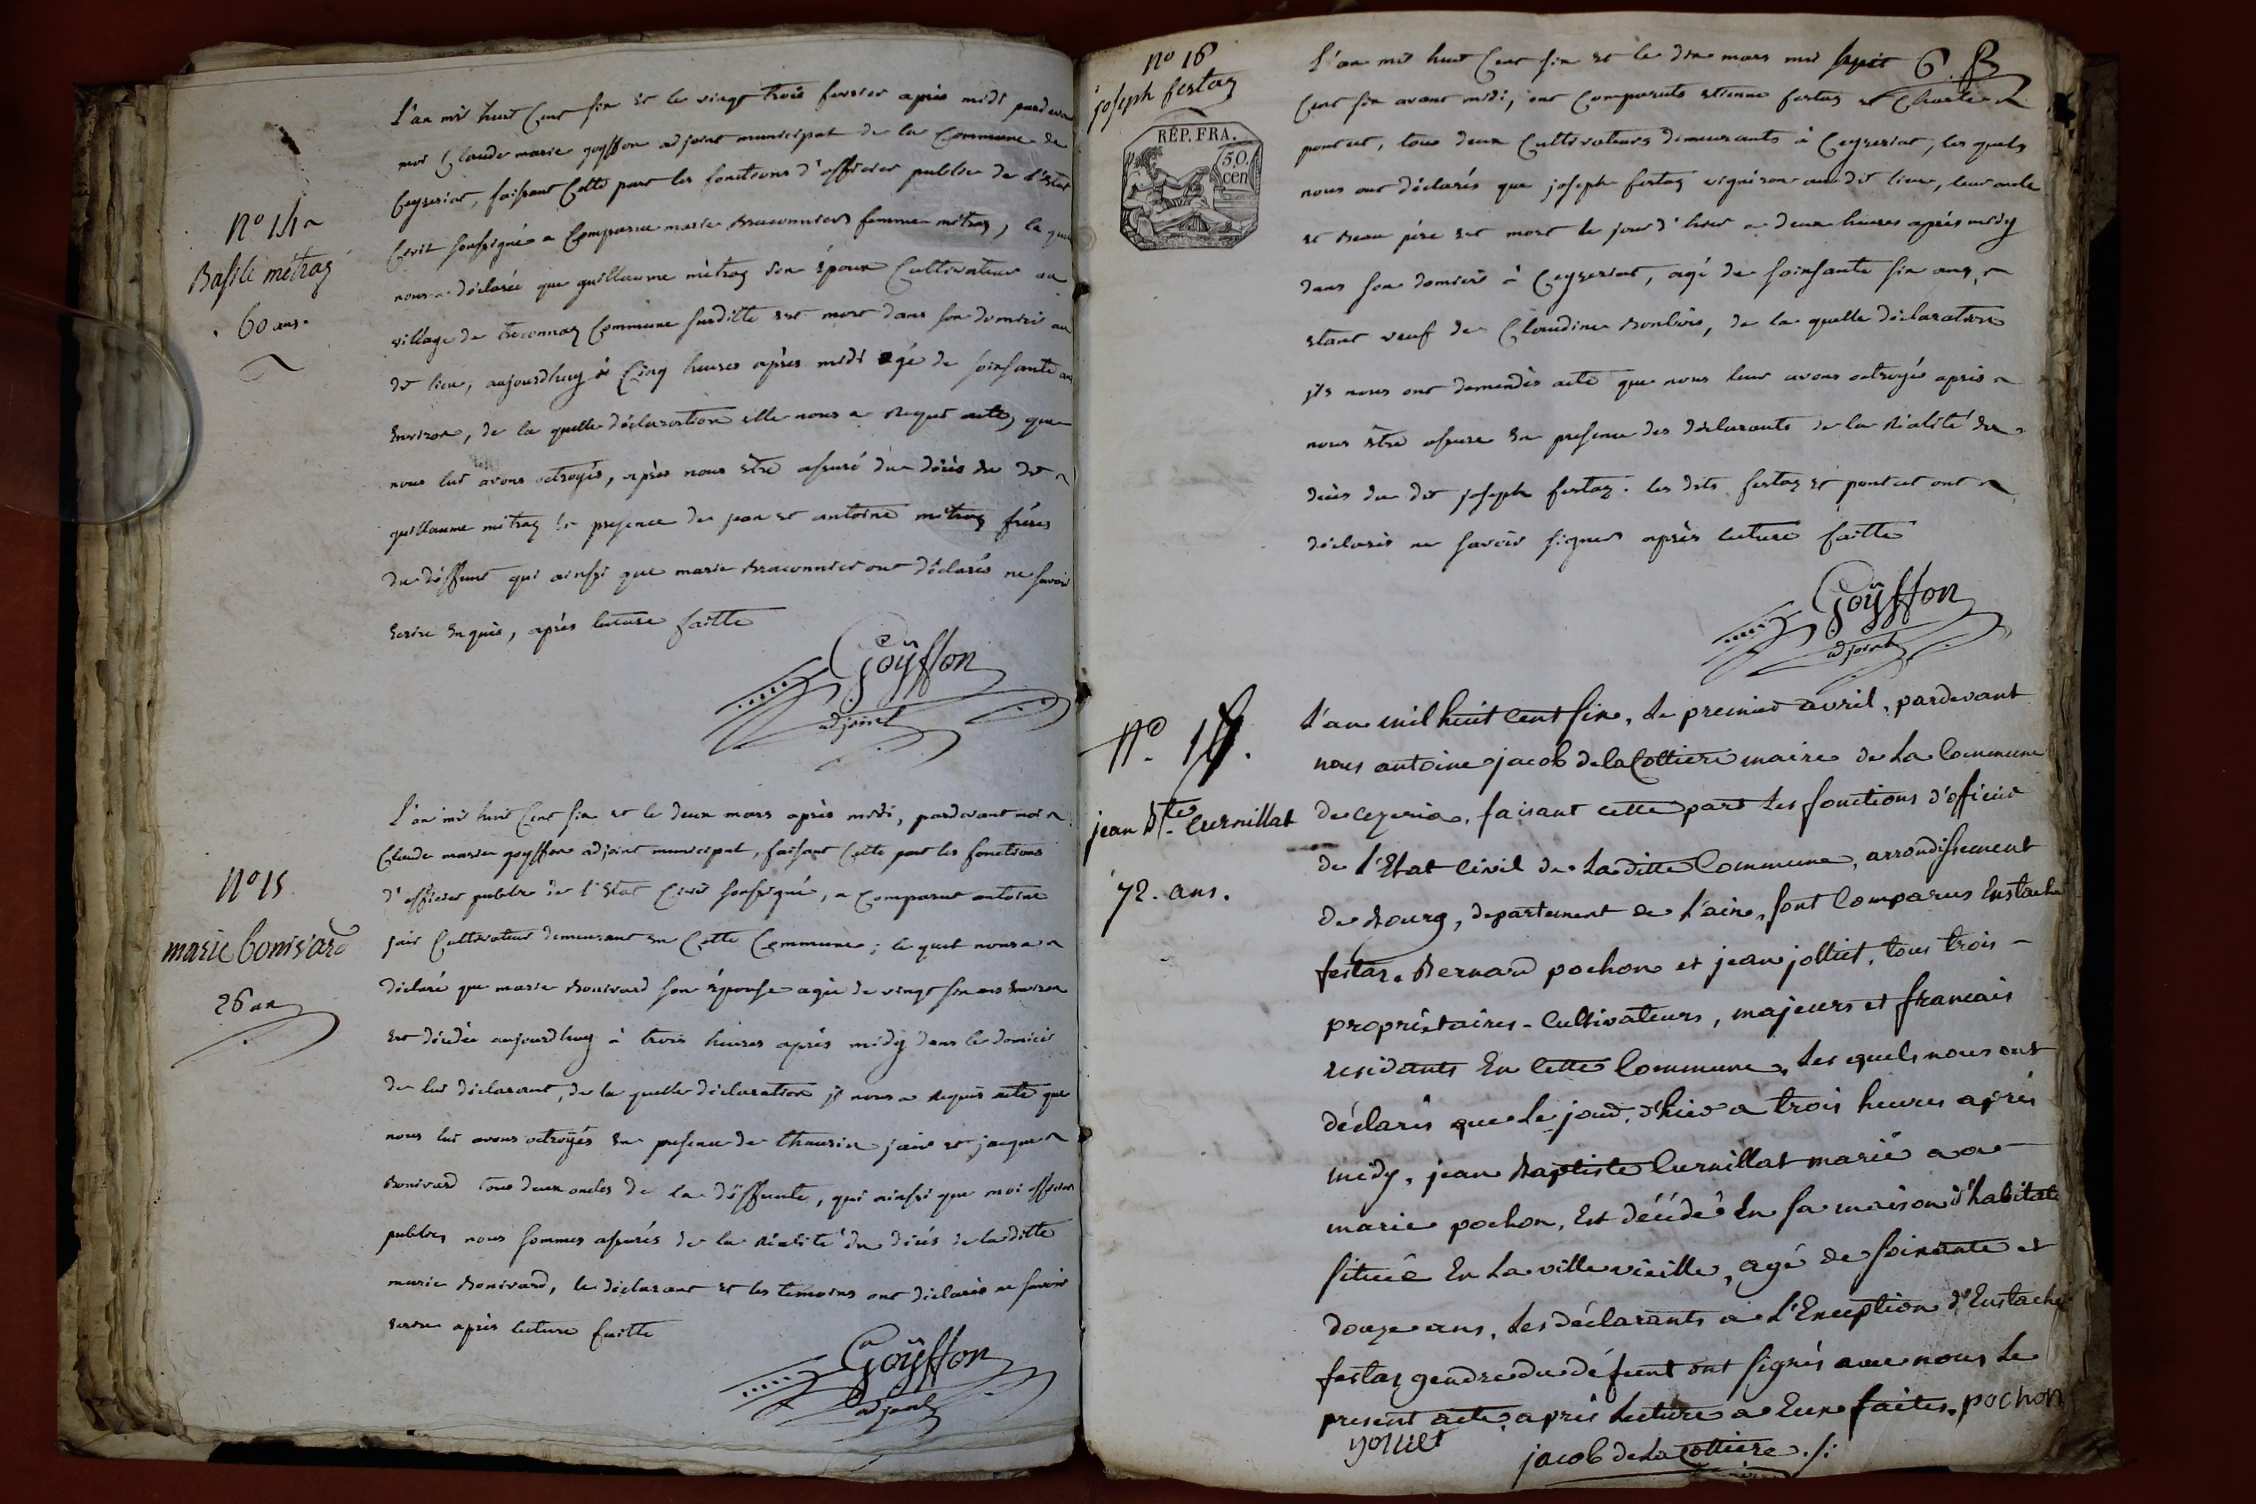 N° 14
Basile métraz
60 ans.
L'an mil huit cent six et le vingt trois fevrier après midi pardevant
moi Claude marie goyffon adjoint municipal de la Commune de
Ceyzeriat, faisant cette part les fonctions d'officier public de l'état
Civil soussigné a Comparue marie Braconnier femme métraz, la quelle
nous a déclaré que guillaume métraz son époux Cultivateur au
village de treconnaz Commune susditte est mort dans son domicil au
dit lieu, aujourdhuy à Cinq heures après midi agé de soissante ans
Environ, de la quelle déclaration elle nous a requit acte, que
nous lui avons octroyés, après nous être assuré du décès du dit
guillaume métraz En presence de jean et antoine métraz fréres
du déffunt qui ainssi que marie Braconnier ont déclarés ne savoir
Ecrire Enquis, après lecture faitte
Goÿffon
adjoint
N° 15
marie bonivard
26 an
L'an mil huit Cent six et le deux mars après midi, pardevant moi
Claude marie goyffon adjoint municipal, faisant Cette part les fonctions
d'officier public de l'état Civil soussigné, a Comparut antoine
jair Cultivateur demeurant en Cette Commune; le quel nous a
déclaré que marie Bonivard son épouse agée de vingt six ans Environ
est décédée aujourdhuy à trois heures après midy dans le domicil
de lui déclarant, de la quelle déclaration il nous a requis acte que
nous lui avons octroyés En presence de jair et jacque
Bonivard tous deux oncles de la déffunte, qui ainssi que moi officier
public, nous sommes assurés de la réalité du décés de laditte
marie Bonivard, le déclarant et les temoins ont déclarés ne savoir
Ecrire après lecture faitte
Goÿffon
adjoint
N° 16
joseph festaz
RÉP. FRA.
50.
cen
6.
L'an mil huit Cent six et le dix mars mil
Cent six avant midi, ont Comparuts etienne festaz et Charle
pontet, tous deux Cultivateurs demeurants à Ceyzeriat, les quels
nous ont déclarés que joseph festaz vigneron au dit lieu, leur oncle
et Beau père est mort le jour d'hier a deux heures après midy
dans son domicil à Ceyzeriat, agé de soissante six ans,
etant veuf de Claudine, de la quelle déclaration
ils nous ont demandés acte que nous leur avons octroyés après
nous être assure En presence des déclarants de la réalité du
décès du dit joseph festaz. les dits festaz et pontet ont
déclarés ne savoir signer après lecture faitte
Goÿffon
adjoint
N°.
jean Bte. Curnillat
72. ans.
L'an mil huit cent six, le premier avril, pardevant
nous antoine jacob de la Cottiere maire de La Commune
de Cezeria, faisant cette part Les fonctions d'officier
de l'Etat Civil de Laditte Commune, arrondissement
de Bourg, departement de L'ain, sont Comparus Eustache
festaz, Bernard pochon et jean jolliet, tous trois
propriétaires-Cultivateurs, majeurs et francais
residants En Cette Commune, Les quels nous ont
déclarés que Le jour d'hier a trois heures aprés
midy, jean Baptiste Curnillat marié a
marie pochon, Est décédé En sa maison d'habitation
située En La ville vieille, agé de soixante et
douze ans, Les déclarants à L'Exception d'Eustache
festaz gendre du défunt ont signés avec nous Le
present acte, après Lecture a Eux faites. pochon
jolliet
jacob de La Cottiere